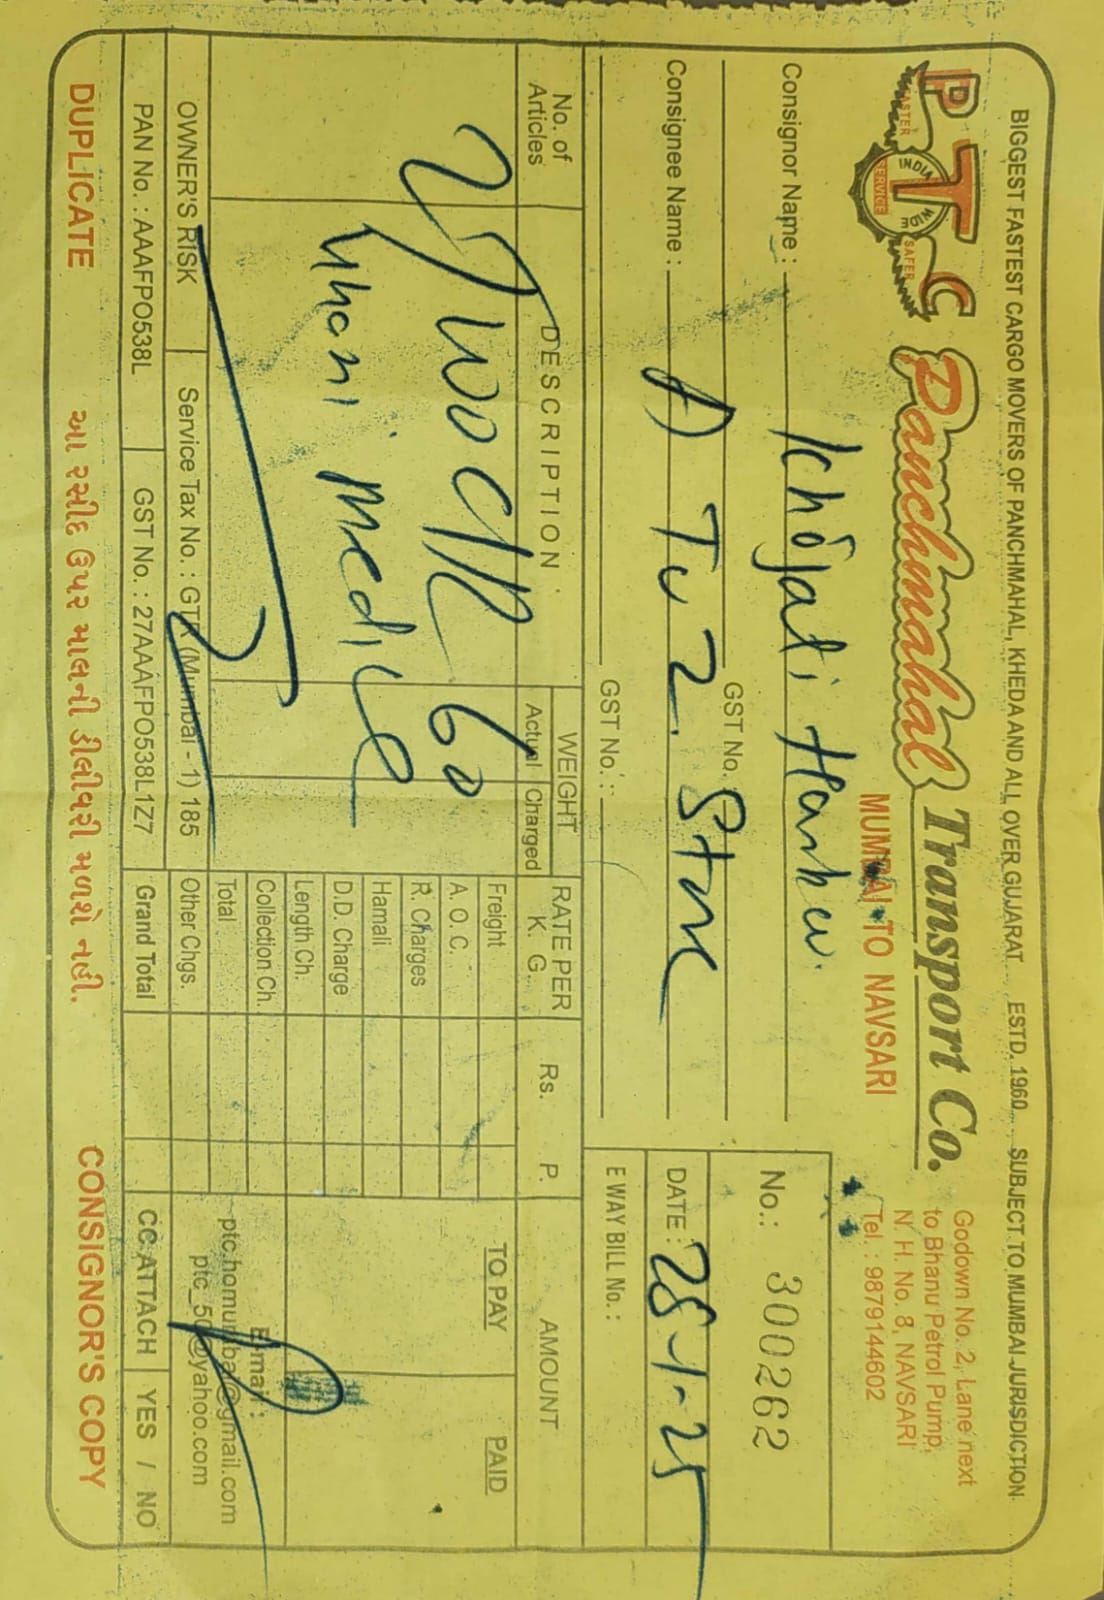 BIGGEST FASTEST CARGO MOVERS OF PANCHMAHAL, KHEDA AND ALL OVER GUJARAT ESTD. 1960 SUBJECT TO MUMBAI JURISDICTION
PTC
FASTER SAFER
INDIA WIDE
SERVICE
Panchmahal Transport Co.
MUMBAI TO NAVSARI
Godown No. 2, Lane next
to Bhanu Petrol Pump,
N. H. No. 8, NAVSARI
Tel. : 9879144602
Consignor Name :
GST No.
Consignee Name : A Tu 2. Store
GST No. :
No.: 300262
DATE : 28-1-25
E WAY BILL No. :
No. of Articles DESCRIPTION WEIGHT Actual Charged RATE PER K. G. Rs. P. AMOUNT
TO PAY PAID
60
medice
Freight
A. O. C.
R. Charges
Hamali
D.D. Charge
Length Ch.
Collection Ch.
Total
Other Chgs.
Grand Total
OWNER'S RISK Service Tax No. : GTR (Mumbai - 1) 185
PAN No. : AAAFPO538L GST No. : 27AAAFPO538L1Z7
Email :
ptc.homumbai@gmail.com
ptc_50@yahoo.com
CC ATTACH YES / NO
DUPLICATE આ રસીદ ઉપર માલની ડીલીવરી મળશે નહી. CONSIGNOR'S COPY